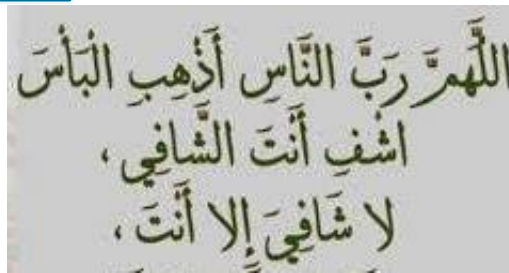 اللَّهمَّ رَبَّ النَّاسِ أَذْهِبِ الْبَأْسَ
اشْفِ أَنْتَ الشَّافِي ،
لا شَافِيَ إِلا أَنْتَ ،